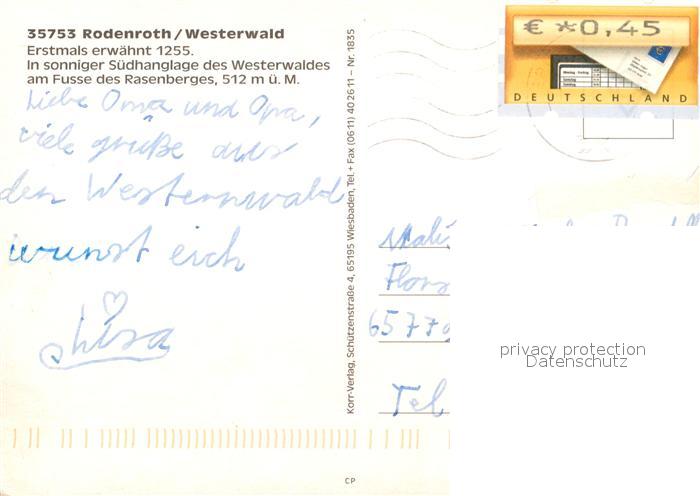 35753 Rodenroth/Westerwald
Erstmals erwähnt 1255.
In sonniger Südhanglage des Westerwaldes
am Fusse des Rasenberges, 512 m ü. M.
Liebe Oma und Opa,
viele grüße aus
den Westernwald
wunst eich
Lisa
Korr-Verlag, Schützenstraße 4, 65195 Wiesbaden, Tel.+ Fax (0611) 402611 – Nr. 1835
€ *0,45
DEUTSCHLAND
65779
Tel
privacy protection
Datenschutz
CP